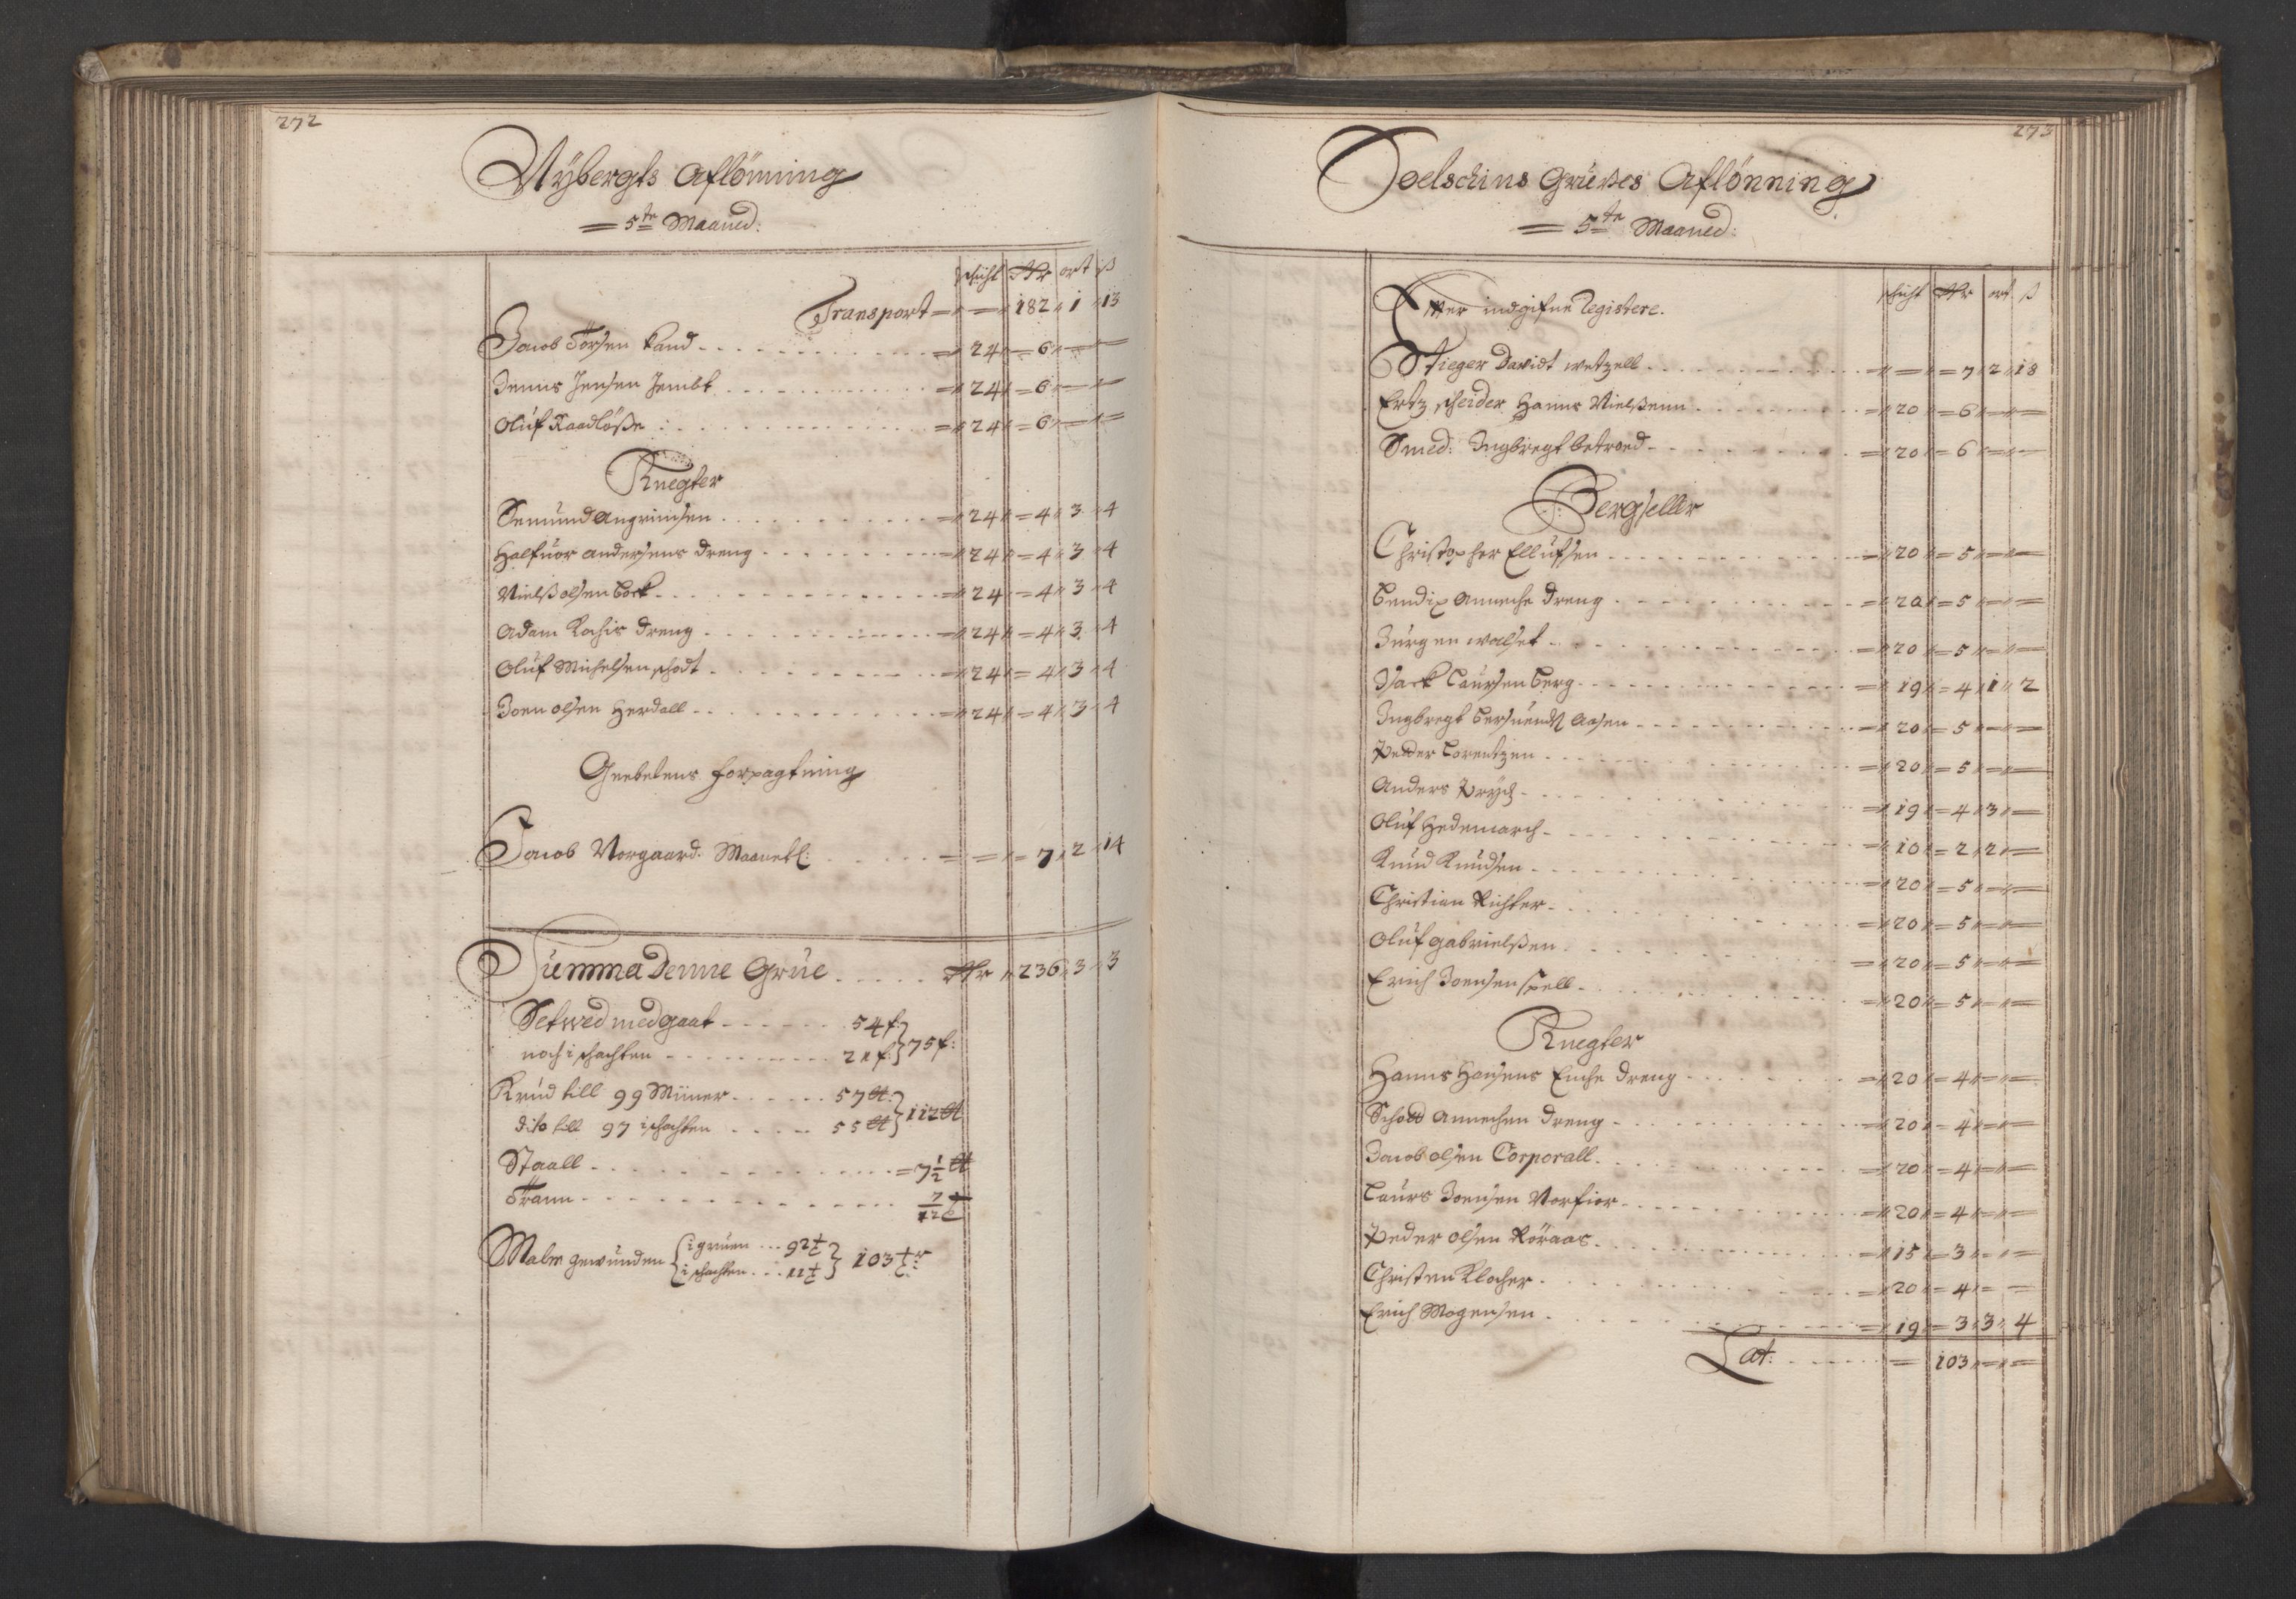 272
Nÿbergts Aflönning
= 5te Maaned:
schicht Rdr ort ß
Transport = „ — „ 182 „ 1 „ 13
Jacob Torsen Land - - - = „ 24 „ = 6 „ — „ —
Jenns Jensen Jembt - - - = „ 24 „ = 6 „ — „ —
Oluf Raadlöße - - - = „ 24 „ = 6 „ — „ —
Knegter
Semund Angrimsen - - - = „ 24 „ = 4 „ 3 „ 4
Halfuor Andersens dreng - - - = „ 24 „ = 4 „ 3 „ 4
Nielß olsen Bock - - - = „ 24 „ = 4 „ 3 „ 4
Adam Kochis dreng - - - = „ 24 „ = 4 „ 3 „ 4
Oluf Michelsen schodt - - - = „ 24 „ = 4 „ 3 „ 4
Joen olsen Herdall - - - = „ 24 „ = 4 „ 3 „ 4
forpagtning
Jacob Norgaard. Maanetl: - - - = „ = „ = 7 „ 2 „ 14
Summa Denne Grue - - - Rdr „ 236 „ 3 „ 3
Setwed medgaat - - - 54 f: } 75 f:
noch i schachten - - - 21 f: }
Krud till 99 Miner - - - 57 ℔: } 112 ℔
dito till 97 i schachten - - - 55 ℔ }
Staall - - - = 7 1/2 ℔
Trann - - - 7/12 t
Malm gewunden { i gruen ... 92 t } 103 tr:
{ i schachten ... 11 t }
273
Soelschins Grußes Aflönning
= 5te Maaned:
schicht Rdr ort ß
Effter indgifne Registere.
Stieger Davidt wetzell - - - = „ — „ = 7 „ 2 „ 18
Ertz scheider Hanns Nielßenn - - - = „ 20 „ = 6 „ — „ —
Smed: Ingbregt betroed - - - = „ 20 „ = 6 „ — „ —
Bergseller
Christopher Ellufsen - - - = „ 20 „ = 5 „ — „ —
Bendix Anneche dreng - - - = „ 20 „ = 5 „ — „ —
Jurgen walset - - - = „ 20 „ = 5 „ — „ —
Isack Laursen Berg - - - = „ 19 „ = 4 „ 1 „ 2
Ingbregt Aasen - - - = „ 20 „ = 5 „ — „ —
Peder Lorentzen - - - = „ 20 „ = 5 „ — „ —
Anders Prÿds - - - = „ 19 „ = 4 „ 3 „ —
Oluf Hedemarch - - - = „ 10 „ = 2 „ 2 „ —
Knud Knudsen - - - = „ 20 „ = 5 „ — „ —
Christian Richter - - - = „ 20 „ = 5 „ — „ —
Oluf gabrielßen - - - = „ 20 „ = 5 „ — „ —
Erich Joensen spell - - - = „ 20 „ = 5 „ — „ —
Knegter
Hanns Hansens Enche dreng - - - = „ 20 „ = 4 „ — „ —
Schott Annechen dreng - - - = „ 20 „ = 4 „ — „ —
Jacob olsen Corporall - - - = „ 20 „ = 4 „ — „ —
Laurs Joensen Norfior - - - = „ 20 „ = 4 „ — „ —
Peder olsen Röraas - - - = „ 15 „ = 3 „ — „ —
Christen Klocher - - - = „ 20 „ = 4 „ — „ —
Erich Mogensen - - - = „ 19 „ = 3 „ 3 „ 4
Lat: - - - = 103 „ — „ —